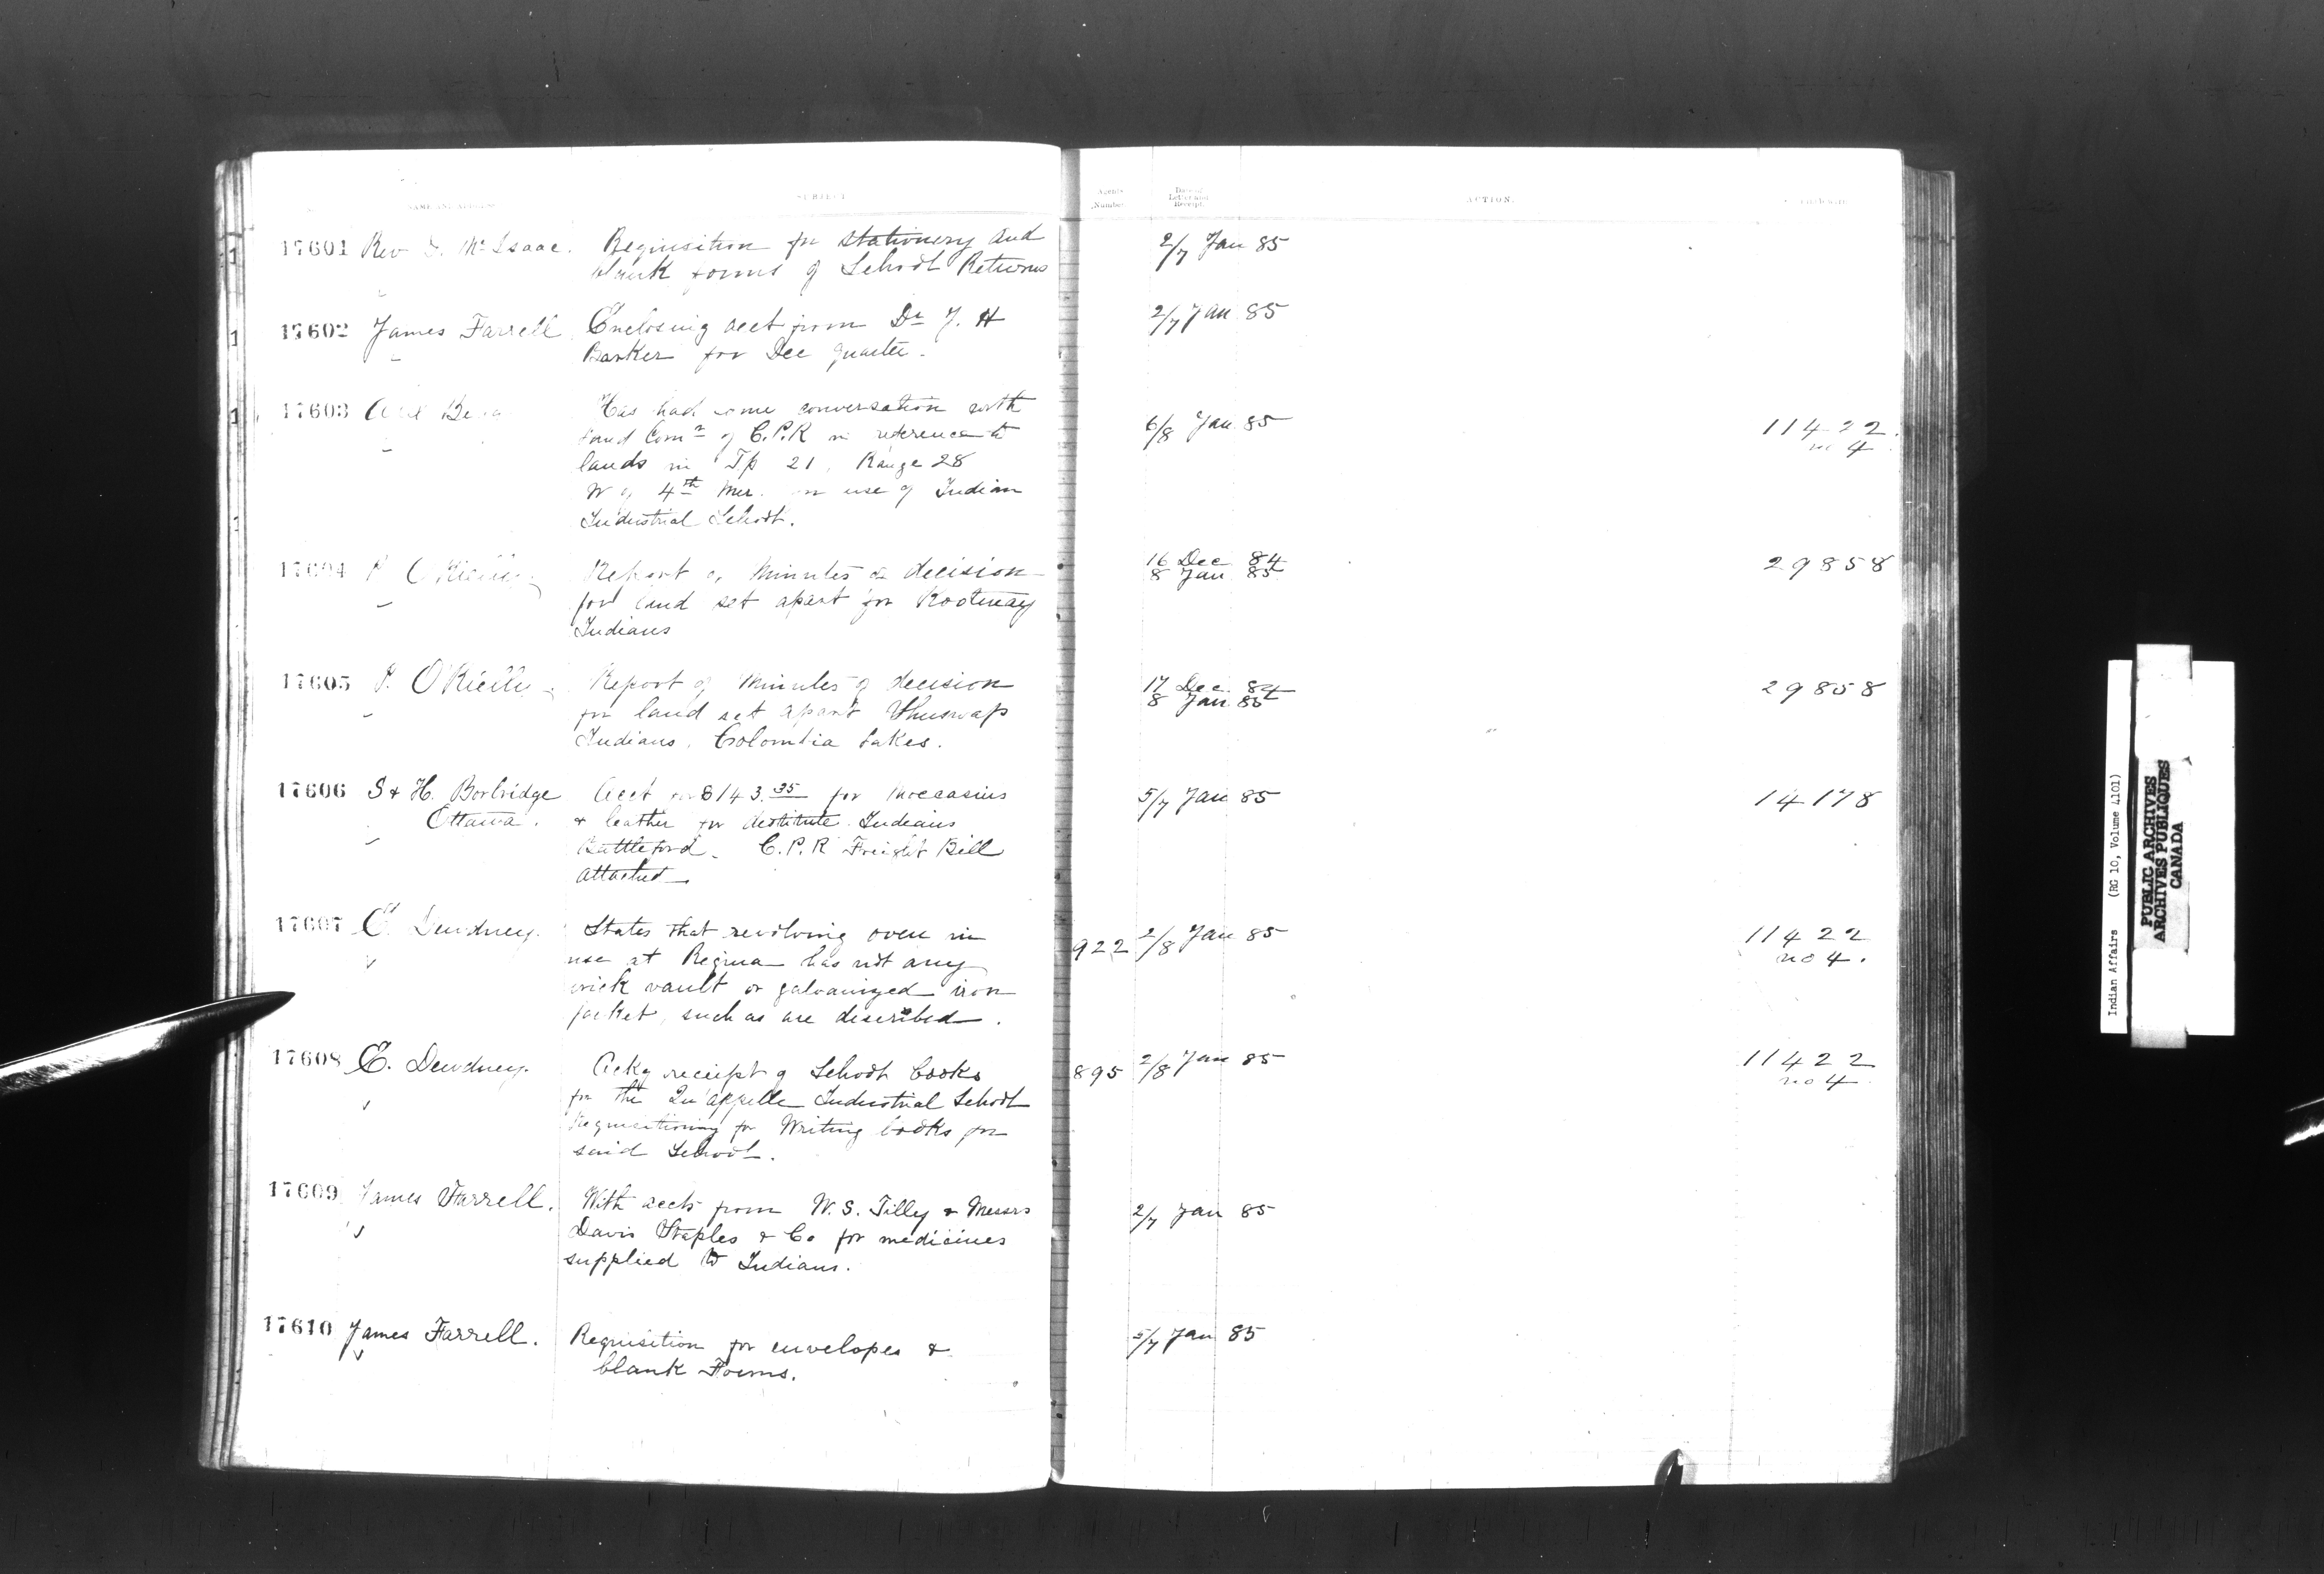 NAME AND ADDRESS
SUBJECT
Agents Number
Date of Letter and Receipt
ACTION.
17601 Rev D. McIsaac. Requisition for stationery and
blank forms of School Returns
2/7 Jan 85
17602 James Farrell Enclosing acct from Dr J. H
Barker for Dec quarter.
2/7 Jan 85
17603 Has had some conversation with
Land Comr of C.P.R in reference to
lands in Tp 21, Range 28
W of 4th Mer. for use of Indian
Industrial School.
6/8 Jan 85
11422
no 4
17604 P. O'Rielly Report of Minutes of decision
for land set apart for Kootenay
Indians
16 Dec 84
8 Jan 85
29858
17605 P. O'Rielly Report of Minutes of decision
for land set apart Shuswap
Indians, Colombia Lakes.
17 Dec. 84
8 Jan 85
29858
17606 S & H. Borbridge Acct for $143.35 for moccasins
Ottawa. & leather for destitute Indians
Battleford. C.P.R Freight Bill
attached.
5/7 Jan 85
14178
17607 E. Dewdney. States that revolving oven in
use at Regina has not any
brick vault or galvanized iron
jacket, such as are described.
922 2/8 Jan 85
11422
no 4.
17608 E. Dewdney. Ackg receipt of School books
for the Qu'appelle Industrial School
Requisitioning for Writing books for
said School.
895 2/8 Jan 85
11422
no 4
17609 James Farrell. With accts from W. S. Tilly & Messrs
Davis Staples & Co for medicines
supplied to Indians.
2/7 Jan 85
17610 James Farrell. Requisition for envelopes &
blank Forms.
5/7 Jan 85
Indian Affairs (RG 10, Volume 4101)
PUBLIC ARCHIVES
ARCHIVES PUBLIQUES
CANADA